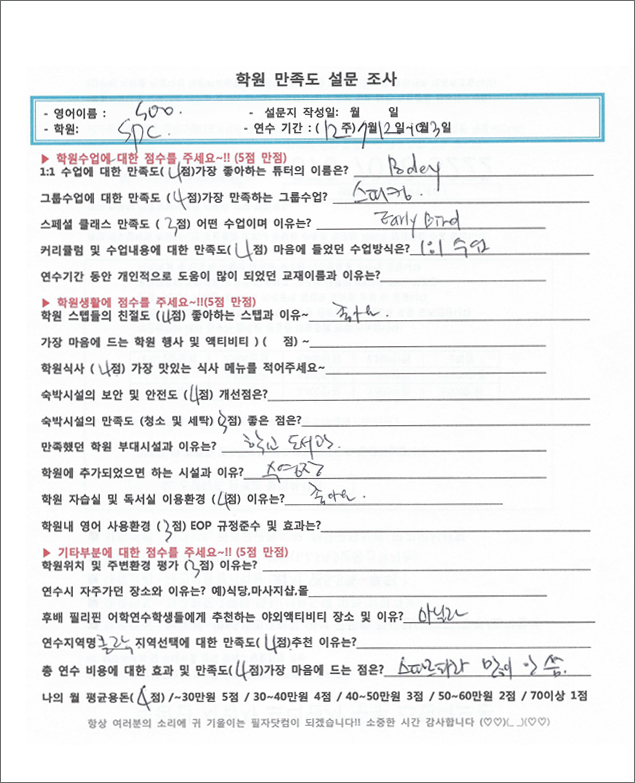 학원 만족도 설문 조사
- 영어이름 : Soo. - 설문지 작성일: 월 일
- 학원: SPC. - 연수 기간 : (12주)7월12일~10월3일
▶ 학원수업에 대한 점수를 주세요~!! (5점 만점)
1:1 수업에 대한 만족도(4점)가장 좋아하는 튜터의 이름은?
그룹수업에 대한 만족도 (4점)가장 만족하는 그룹수업? 스피킹.
스페셜 클래스 만족도 (3점) 어떤 수업이며 이유는? Early Bird
커리큘럼 및 수업내용에 대한 만족도(4점) 마음에 들었던 수업방식은? 1:1 수업
연수기간 동안 개인적으로 도움이 많이 되었던 교재이름과 이유는?
▶ 학원생활에 점수를 주세요~!!(5점 만점)
학원 스텝들의 친절도 (4점) 좋아하는 스텝과 이유~ 좋아요.
가장 마음에 드는 학원 행사 및 액티비티 ) ( 점) ~
학원식사 ( 4점) 가장 맛있는 식사 메뉴를 적어주세요~
숙박시설의 보안 및 안전도 (4점) 개선점은?
숙박시설의 만족도 (청소 및 세탁) (3점) 좋은 점은?
만족했던 학원 부대시설과 이유는? 학교 도서관.
학원에 추가되었으면 하는 시설과 이유? 수영장
학원 자습실 및 독서실 이용환경 (4점) 이유는? 좋아요.
학원내 영어 사용환경 (3점) EOP 규정준수 및 효과는?
▶ 기타부분에 대한 점수를 주세요~!! (5점 만점)
학원위치 및 주변환경 평가 (3점) 이유는?
연수시 자주가던 장소와 이유는? 예)식당,마사지샵,몰
후배 필리핀 어학연수학생들에게 추천하는 야외액티비티 장소 및 이유? 마닐라
연수지역명 클락 지역선택에 대한 만족도 (4점)추천 이유는?
총 연수 비용에 대한 효과 및 만족도(4점)가장 마음에 드는 점은? 스파르타라 많이 안 씀.
나의 월 평균용돈(4점) /~30만원 5점 / 30~40만원 4점 / 40~50만원 3점 / 50~60만원 2점 / 70이상 1점
항상 여러분의 소리에 귀 기울이는 필자닷컴이 되겠습니다!! 소중한 시간 감사합니다 (♡♡)(_ _)(♡♡)